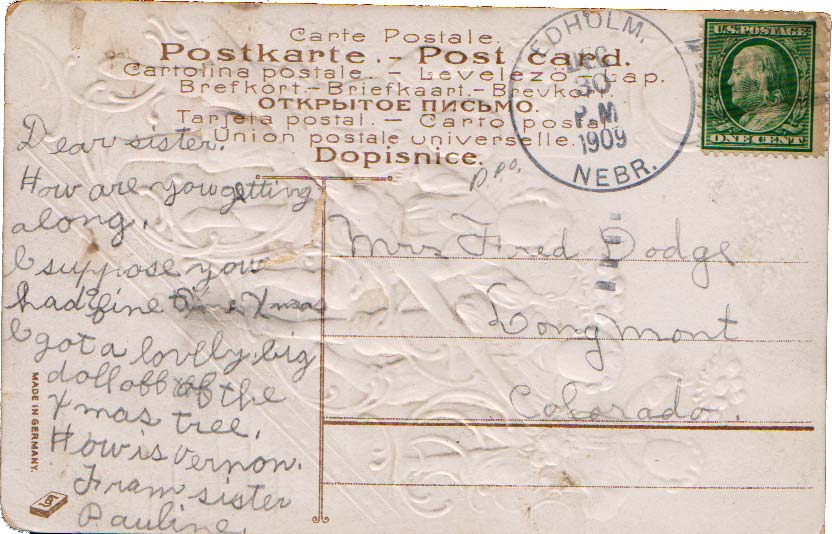 Carte Postale.
Postkarte. - Post card.
Cartolina postale. - Levelező-Lap.
Brefkort.-Briefkaart.-Brevkort.
ОТКРЫТОЕ ПИСЬМО.
Tarjeta postal. - Carto postal.
Union postale universelle.
Dopisnice.
EDHOLM.
DEC
30
P.M
1909
NEBR.
U.S. POSTAGE
ONE CENT
P.P.O.
Dear sister.
How are you getting
along.
I suppose you
had a fine time Xmas
I got a lovely big
doll off of the
Xmas tree.
How is Vernon.
From sister
Pauline.
Mrs Fred Dodge
Longmont
Colorado.
MADE IN GERMANY.